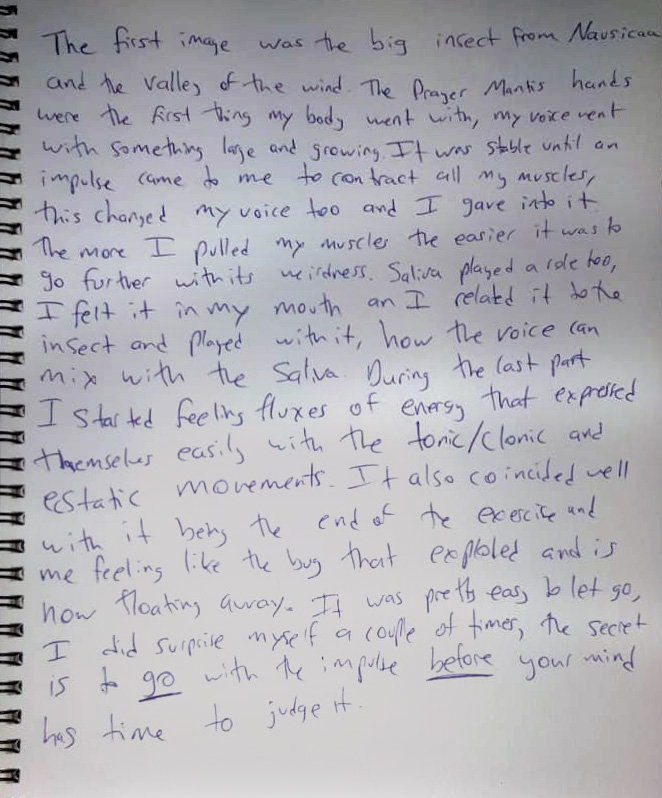 The first image was the big insect from Nausicaa
and the valley of the wind. The Prayer Mantis hands
were the first thing my body went with, my voice went
with something large and growing. It was stable until an
impulse came to me to contract all my muscles,
this changed my voice too and I gave into it.
The more I pulled my muscles the easier it was to
go further with its weirdness. Saliva played a role too,
I felt it in my mouth an I related it to the
insect and played with it, how the voice can
mix with the Saliva. During the last part
I started feeling fluxes of energy that expressed
themselves easily with the tonic/clonic and
ecstatic movements. It also coincided well
with it being the end of the excercise and
me feeling like the bug that exploled and is
now floating away. It was pretty easy to let go,
I did surprise myself a couple of times, the secret
is to go with the impulse before your mind
has time to judge it.